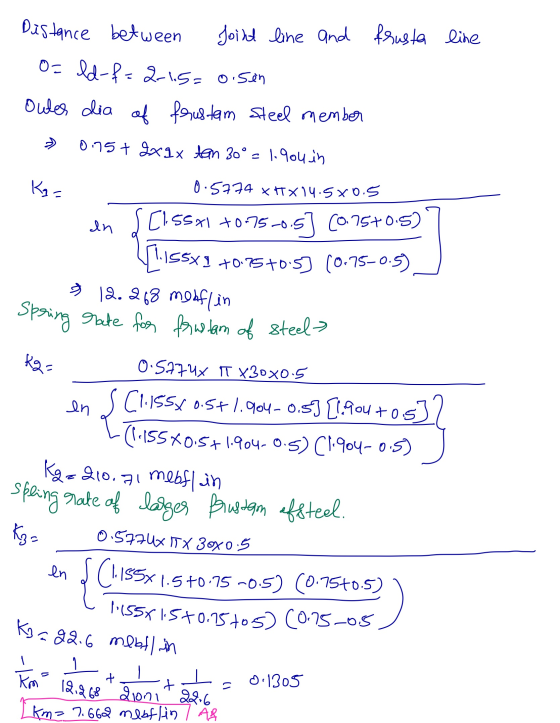 Distance between joint line and frusta line
O = ld-f = 2-1.5 = 0.5in
Outer dia of frustam steel member
⇒ 0.75 + 2x1x tan 30° = 1.904 in
K1 = 0.5774 x π x 14.5 x 0.5
ln { [1.55x1 + 0.75-0.5] (0.75+0.5)
[1.155x1 + 0.75+0.5] (0.75-0.5) ]
⇒ 12.268 mlbf/in
Spring rate for frustam of steel →
K2 = 0.5774x π x30x0.5
ln { (1.155x 0.5 + 1.904 - 0.5] [1.904 + 0.5] }
(1.155x0.5+1.904-0.5) (1.904-0.5)
K2 = 210.71 mlbf/in
Spring rate of larger frustam of steel.
K3 = 0.5774x π x 30x0.5
ln { (1.155x 1.5+0.75-0.5) (0.75+0.5)
1.155x1.5+0.75+0.5) (0.75-0.5 )
K3 = 22.6 mlbf/in
1/Km = 1/12.268 + 1/210.71 + 1/22.6 = 0.1305
Km = 7.662 mlbf/in